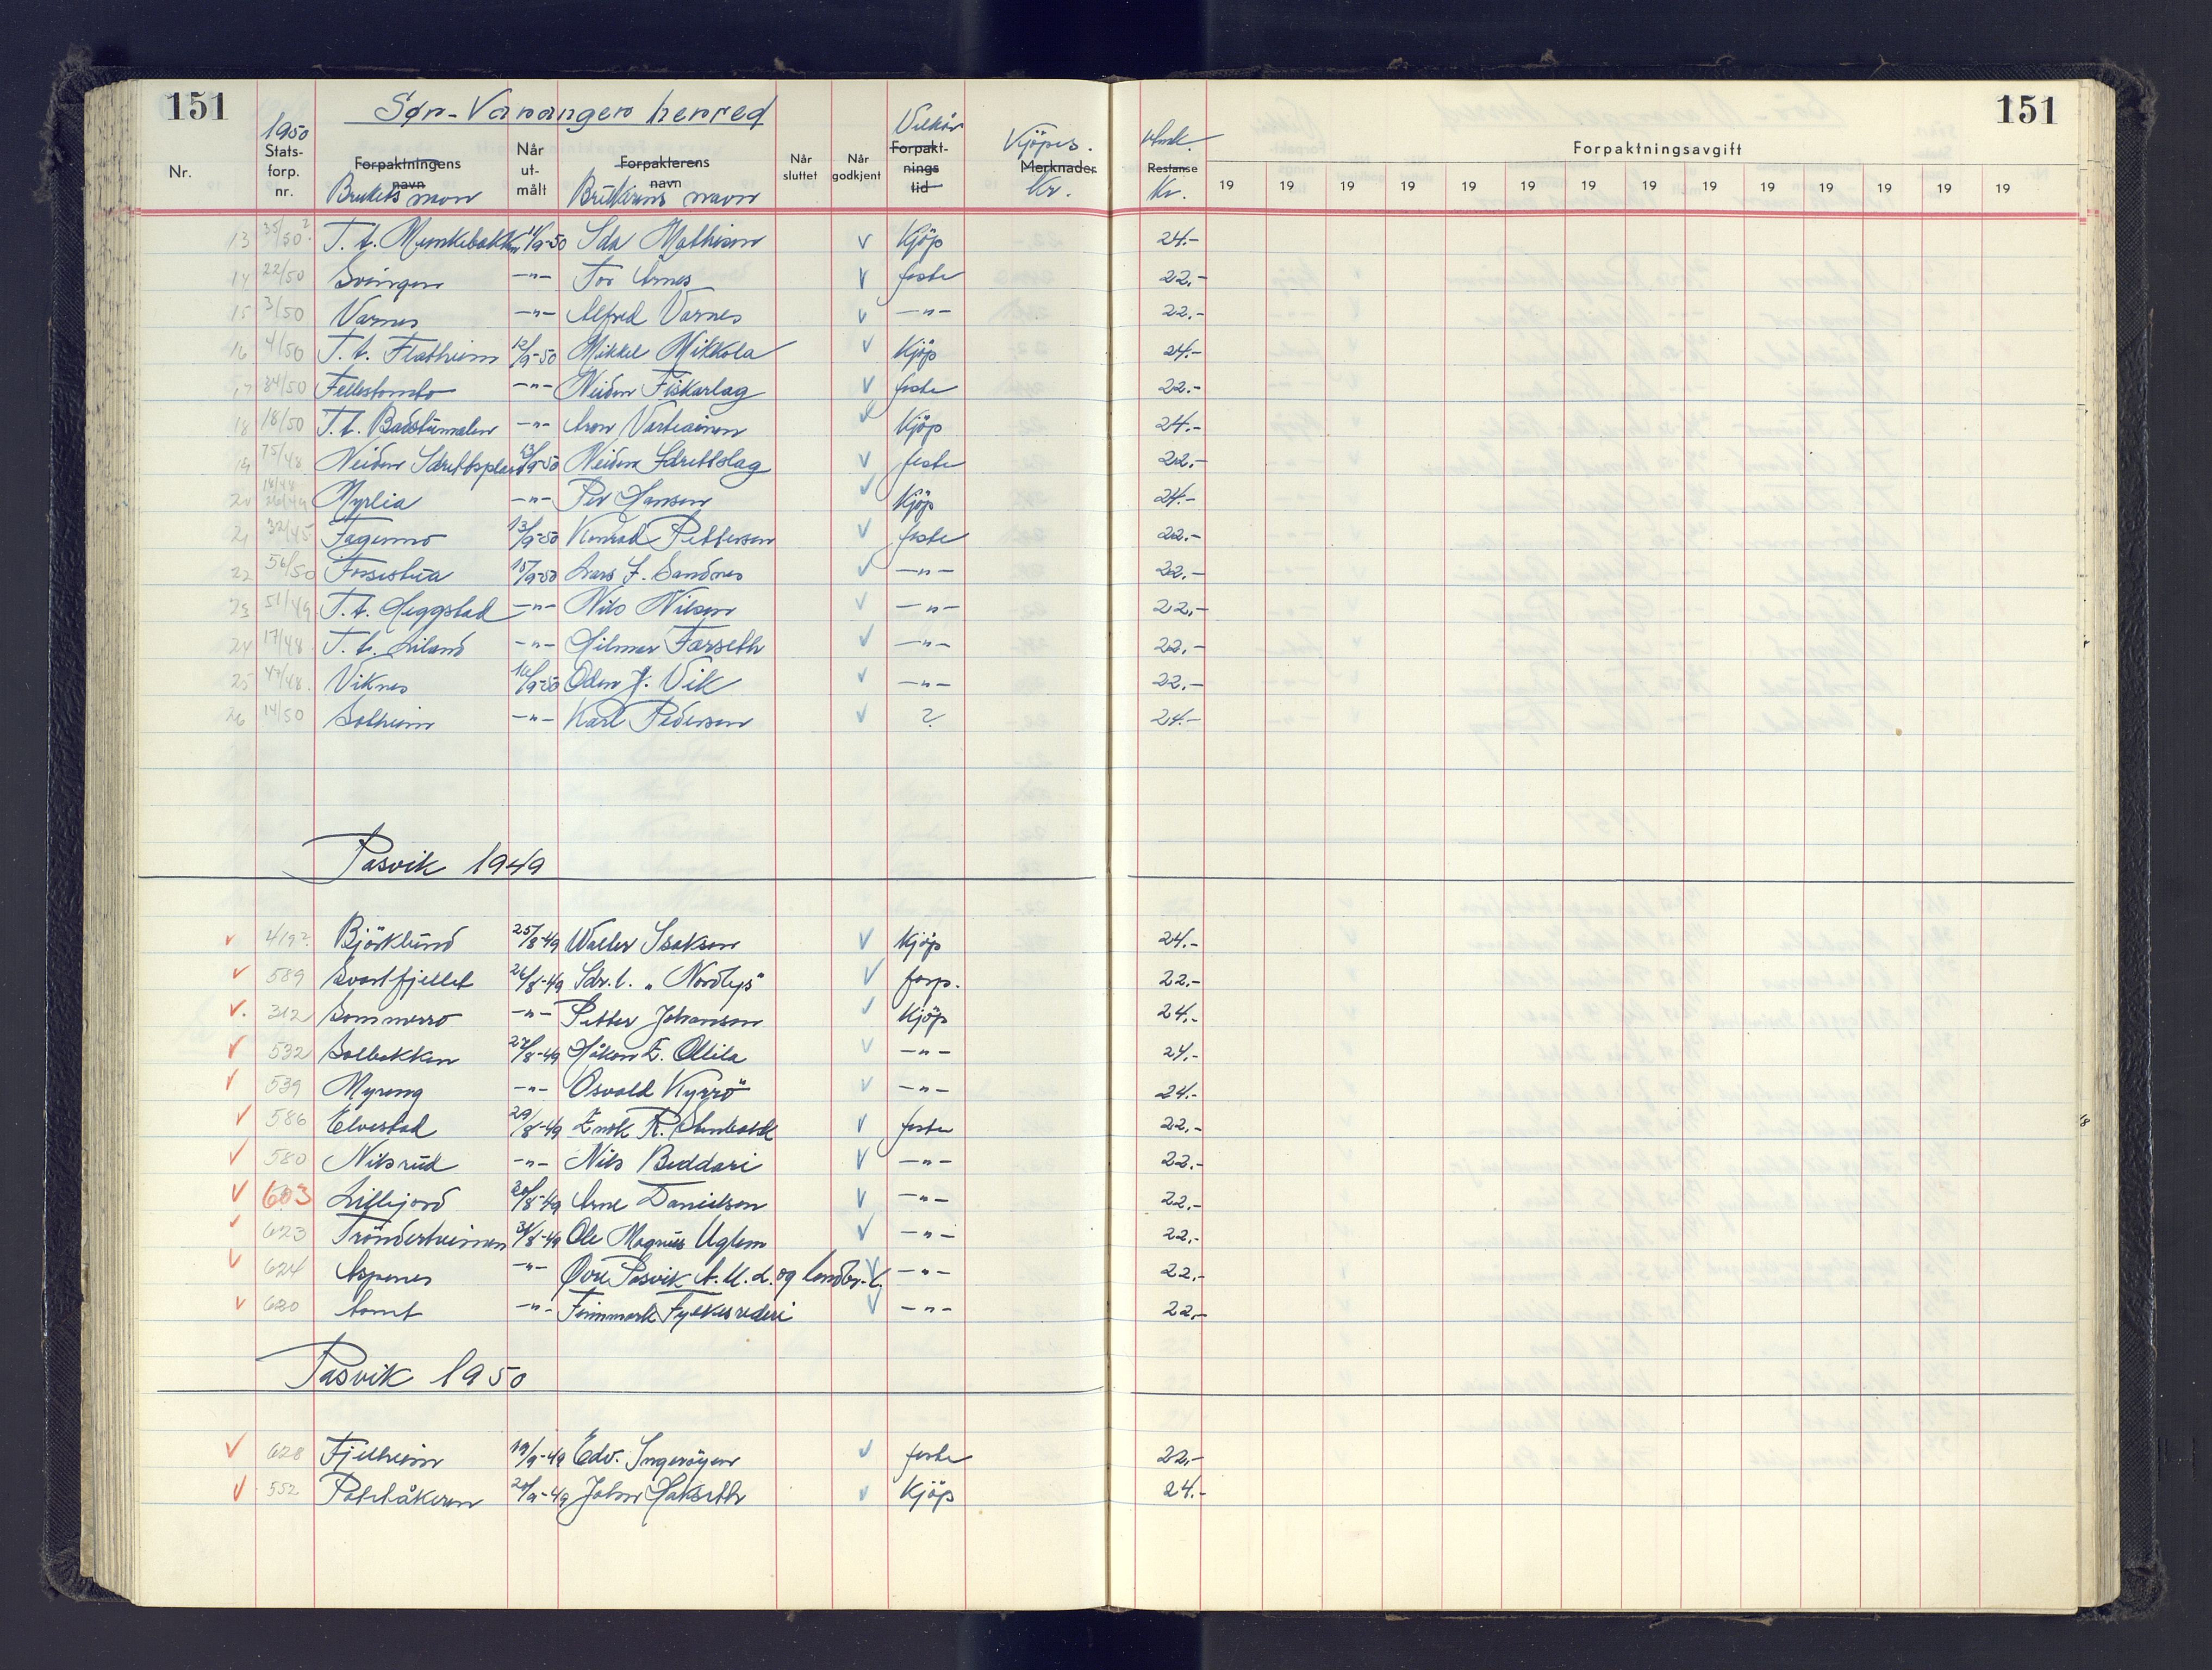 151
Sør-Varanger herred
151
1950
Nr.
Stats-
forp.
nr.
Forpaktningens
navn
Brukets navn
Når
ut-
målt
Forpakterens
navn
Brukerens navn
Når
sluttet
Når
godkjent
Vilkår
Forpakt-
nings
tid
Kjøpes.
Merknader
Kr.
Restanse
Kr.
Forpaktningsavgift
19 19 19 19 19 19 19 19 19 19 19 19 19 19
13 35/50? T. t. Munkebakken 11/9-50 Ida Mathisen v Kjöp 24.-
14 22/50 Svingen -"- Tor Arnes v feste 22.-
15 3/50 Varnes -"- Alfred Varnes v -"- 22.-
16 4/50 T. t. Flatheim 12/9-50 Mikkel Mikkola v Kjöp 24.-
17 34/50 Fellestomta -"- Neiden Fiskarlag v feste 22.-
18 18/50 T. t. Badstumolen -"- Aron Vartiainen v Kjöp 24.-
19 75/48 Neiden Idrettsplass 13/9-50 Neiden Idrettslag v feste 22.-
20 18/48 26/49 Myrlia -"- Per Hansen v Kjöp 24.-
21 32/45 Fagermo 13/9-50 Konrad Pettersen v feste 22.-
22 56/50 Fossestua 15/9-50 Lars J. Sandnes v -"- 22.-
23 51/49 T. t. Heggstad -"- Nils Nilsen v -"- 22.-
24 17/48 T. t. Liland -"- Hilmar Farseth v -"- 22.-
25 47/48 Viknes 16/9-50 Oden J. Vik v -"- 22.-
26 14/50 Solheim -"- Karl Pedersen v ? 24.-
Pasvik 1949
v 419? Björklund 25/8-49 Walter Isaksen v Kjöp 24.-
v 589 Svartfjellet 26/8-49 Idr. l. "Nordlys" v forp. 22.-
v 312 Sommerro -"- Petter Johansen v Kjöp 24.-
v 532 Solbakken 27/8-49 Håkon E. Ollila v -"- 24.-
v 539 Myreng -"- Osvald Kyrrö v -"- 24.-
v 586 Elvestad 29/8-49 Enok R. v feste 22.-
v 580 Nilsrud -"- Nils Beddari v -"- 22.-
v 603 Lillejord 30/8-49 Arne Danielsen v -"- 22.-
v 623 Trönderheimen 31/8-49 Ole Magnus Uglem v -"- 22.-
v 624 Aspenes -"- Øvre Pasvik A. U. L. og landbr. l. v -"- 22.-
v 620 Tomt -"- Finnmark Fylkesrederi v -"- 22.-
Pasvik 1950
v 628 Fjellheim 19/9-49 Edv. Ingeröyen v feste 22.-
v 552 Potetåkeren 20/9-49 John Hakseth v Kjöp 24.-